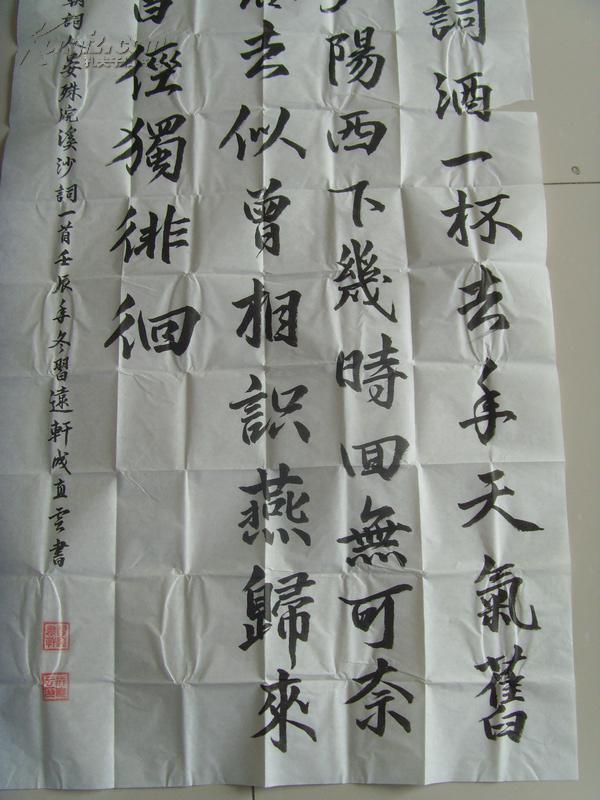 詞酒一杯去年天氣舊
陽西下幾時回無可奈
去似曾相識燕歸來
香徑獨徘徊
朝詞人安殊浣溪沙詞一首壬辰年冬習遠軒成直雲書